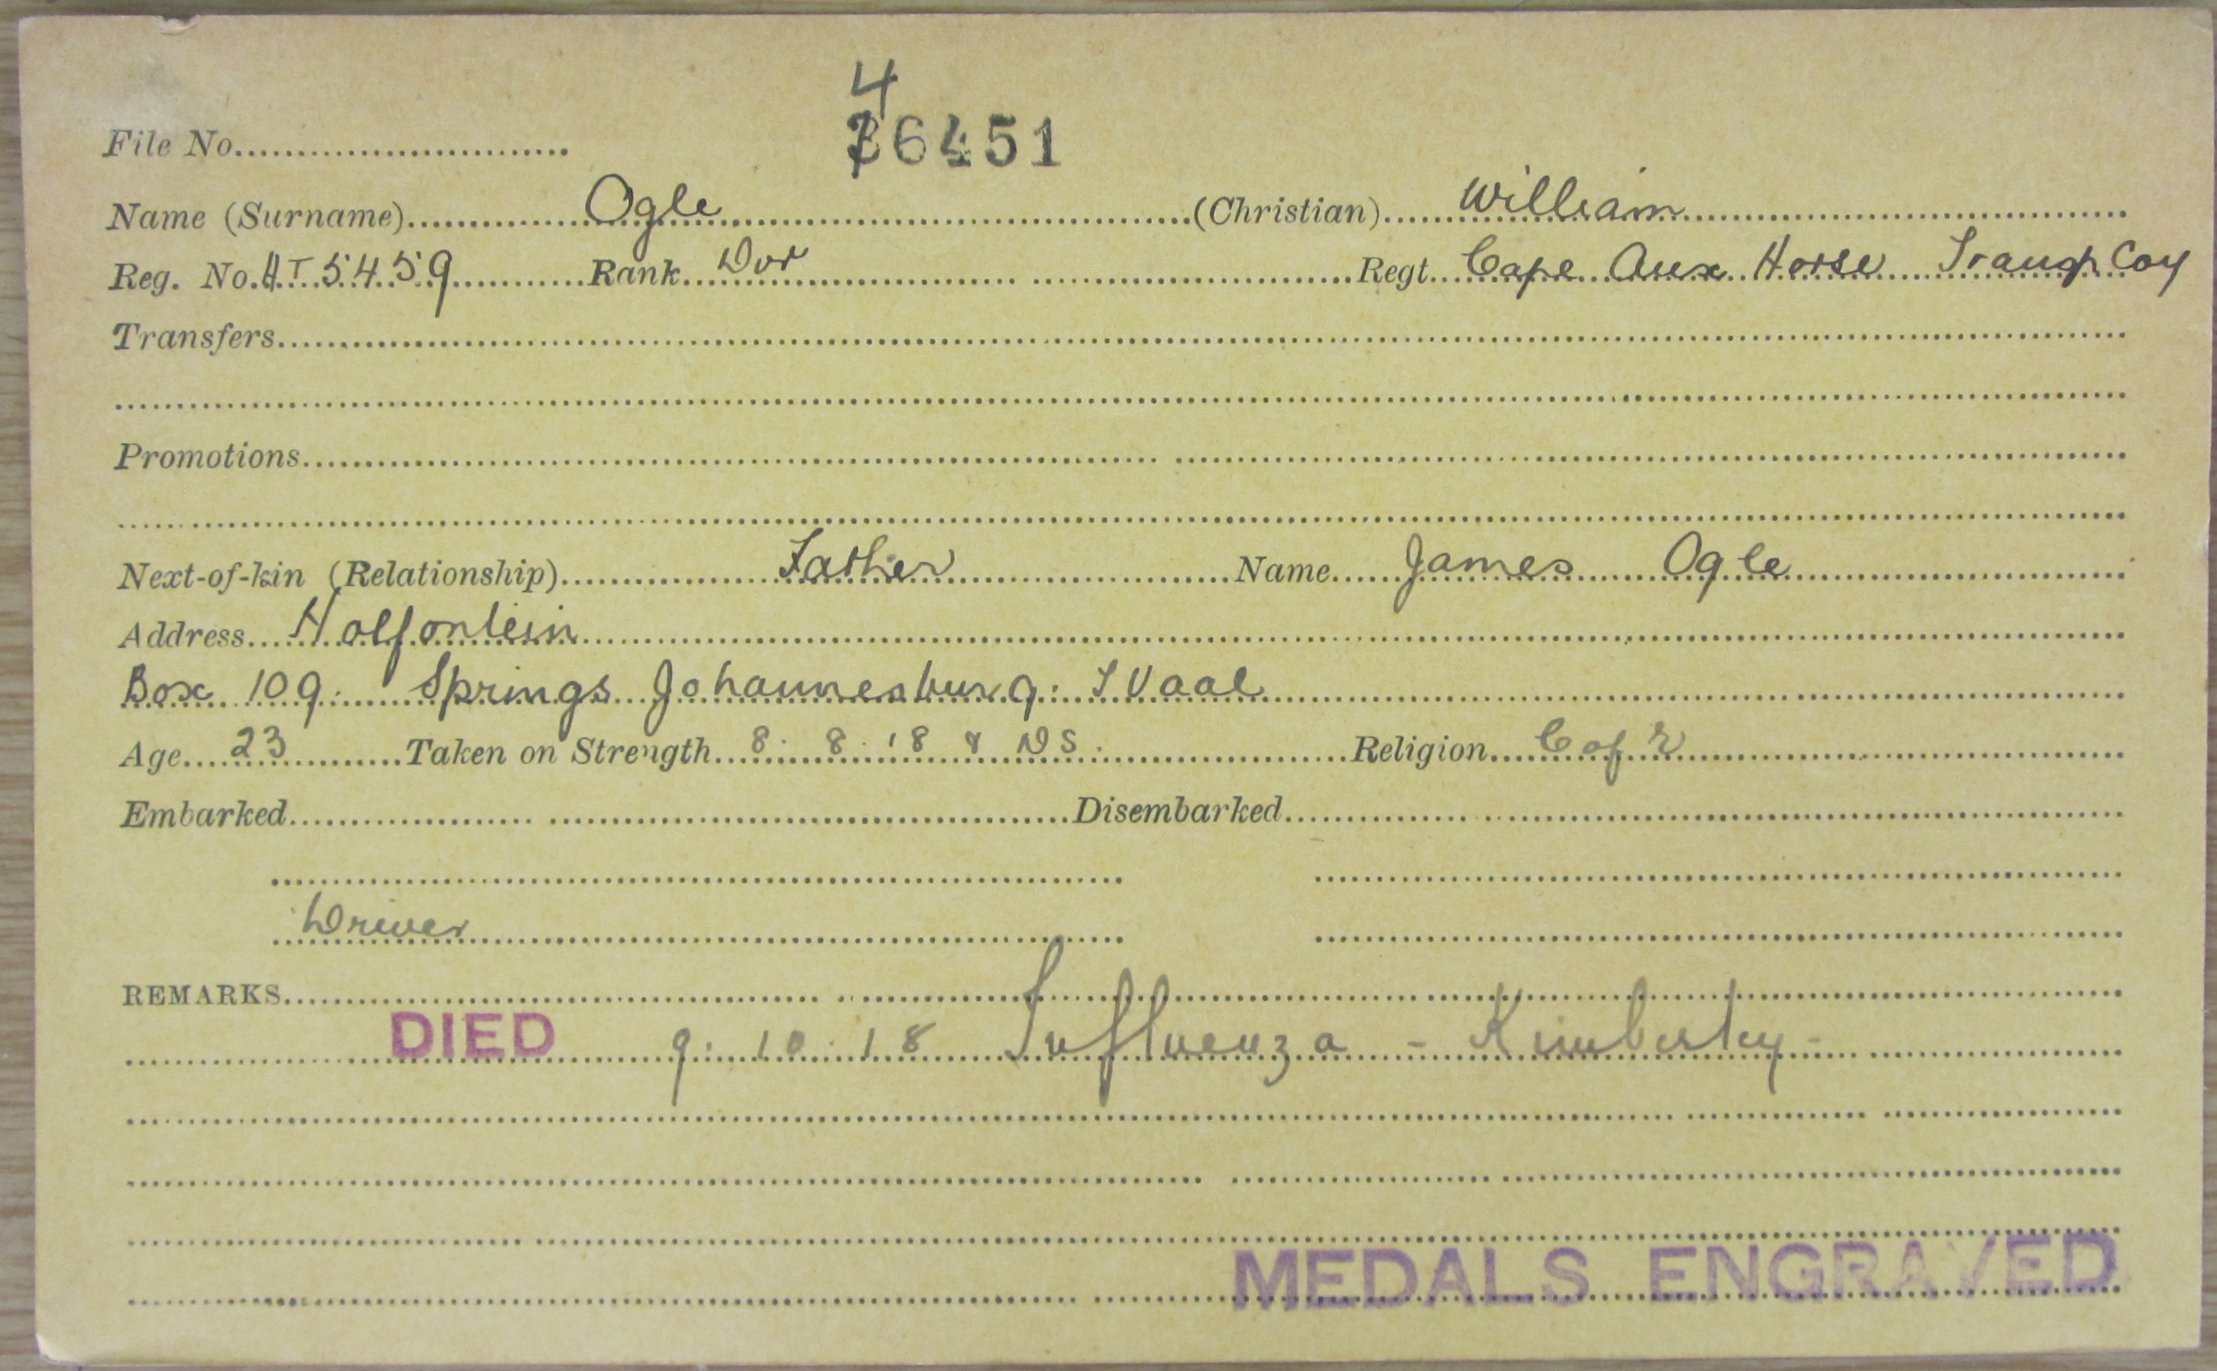 4
File No. 36451
Name (Surname) Ogle (Christian) William
Reg. No. HT 5459 Rank Dvr Regt Cape Aux Horse Transp Coy
Transfers
Promotions
Next-of-kin (Relationship) Father Name James Ogle
Address Holfontein
Box 109. Springs Johannesburg. T Vaal
Age 23 Taken on Strength 8. 8. 18 Religion C of E
Embarked Disembarked
Driver
REMARKS
DIED 9. 10. 18 Influenza - Kimberley -
MEDALS ENGRAVED